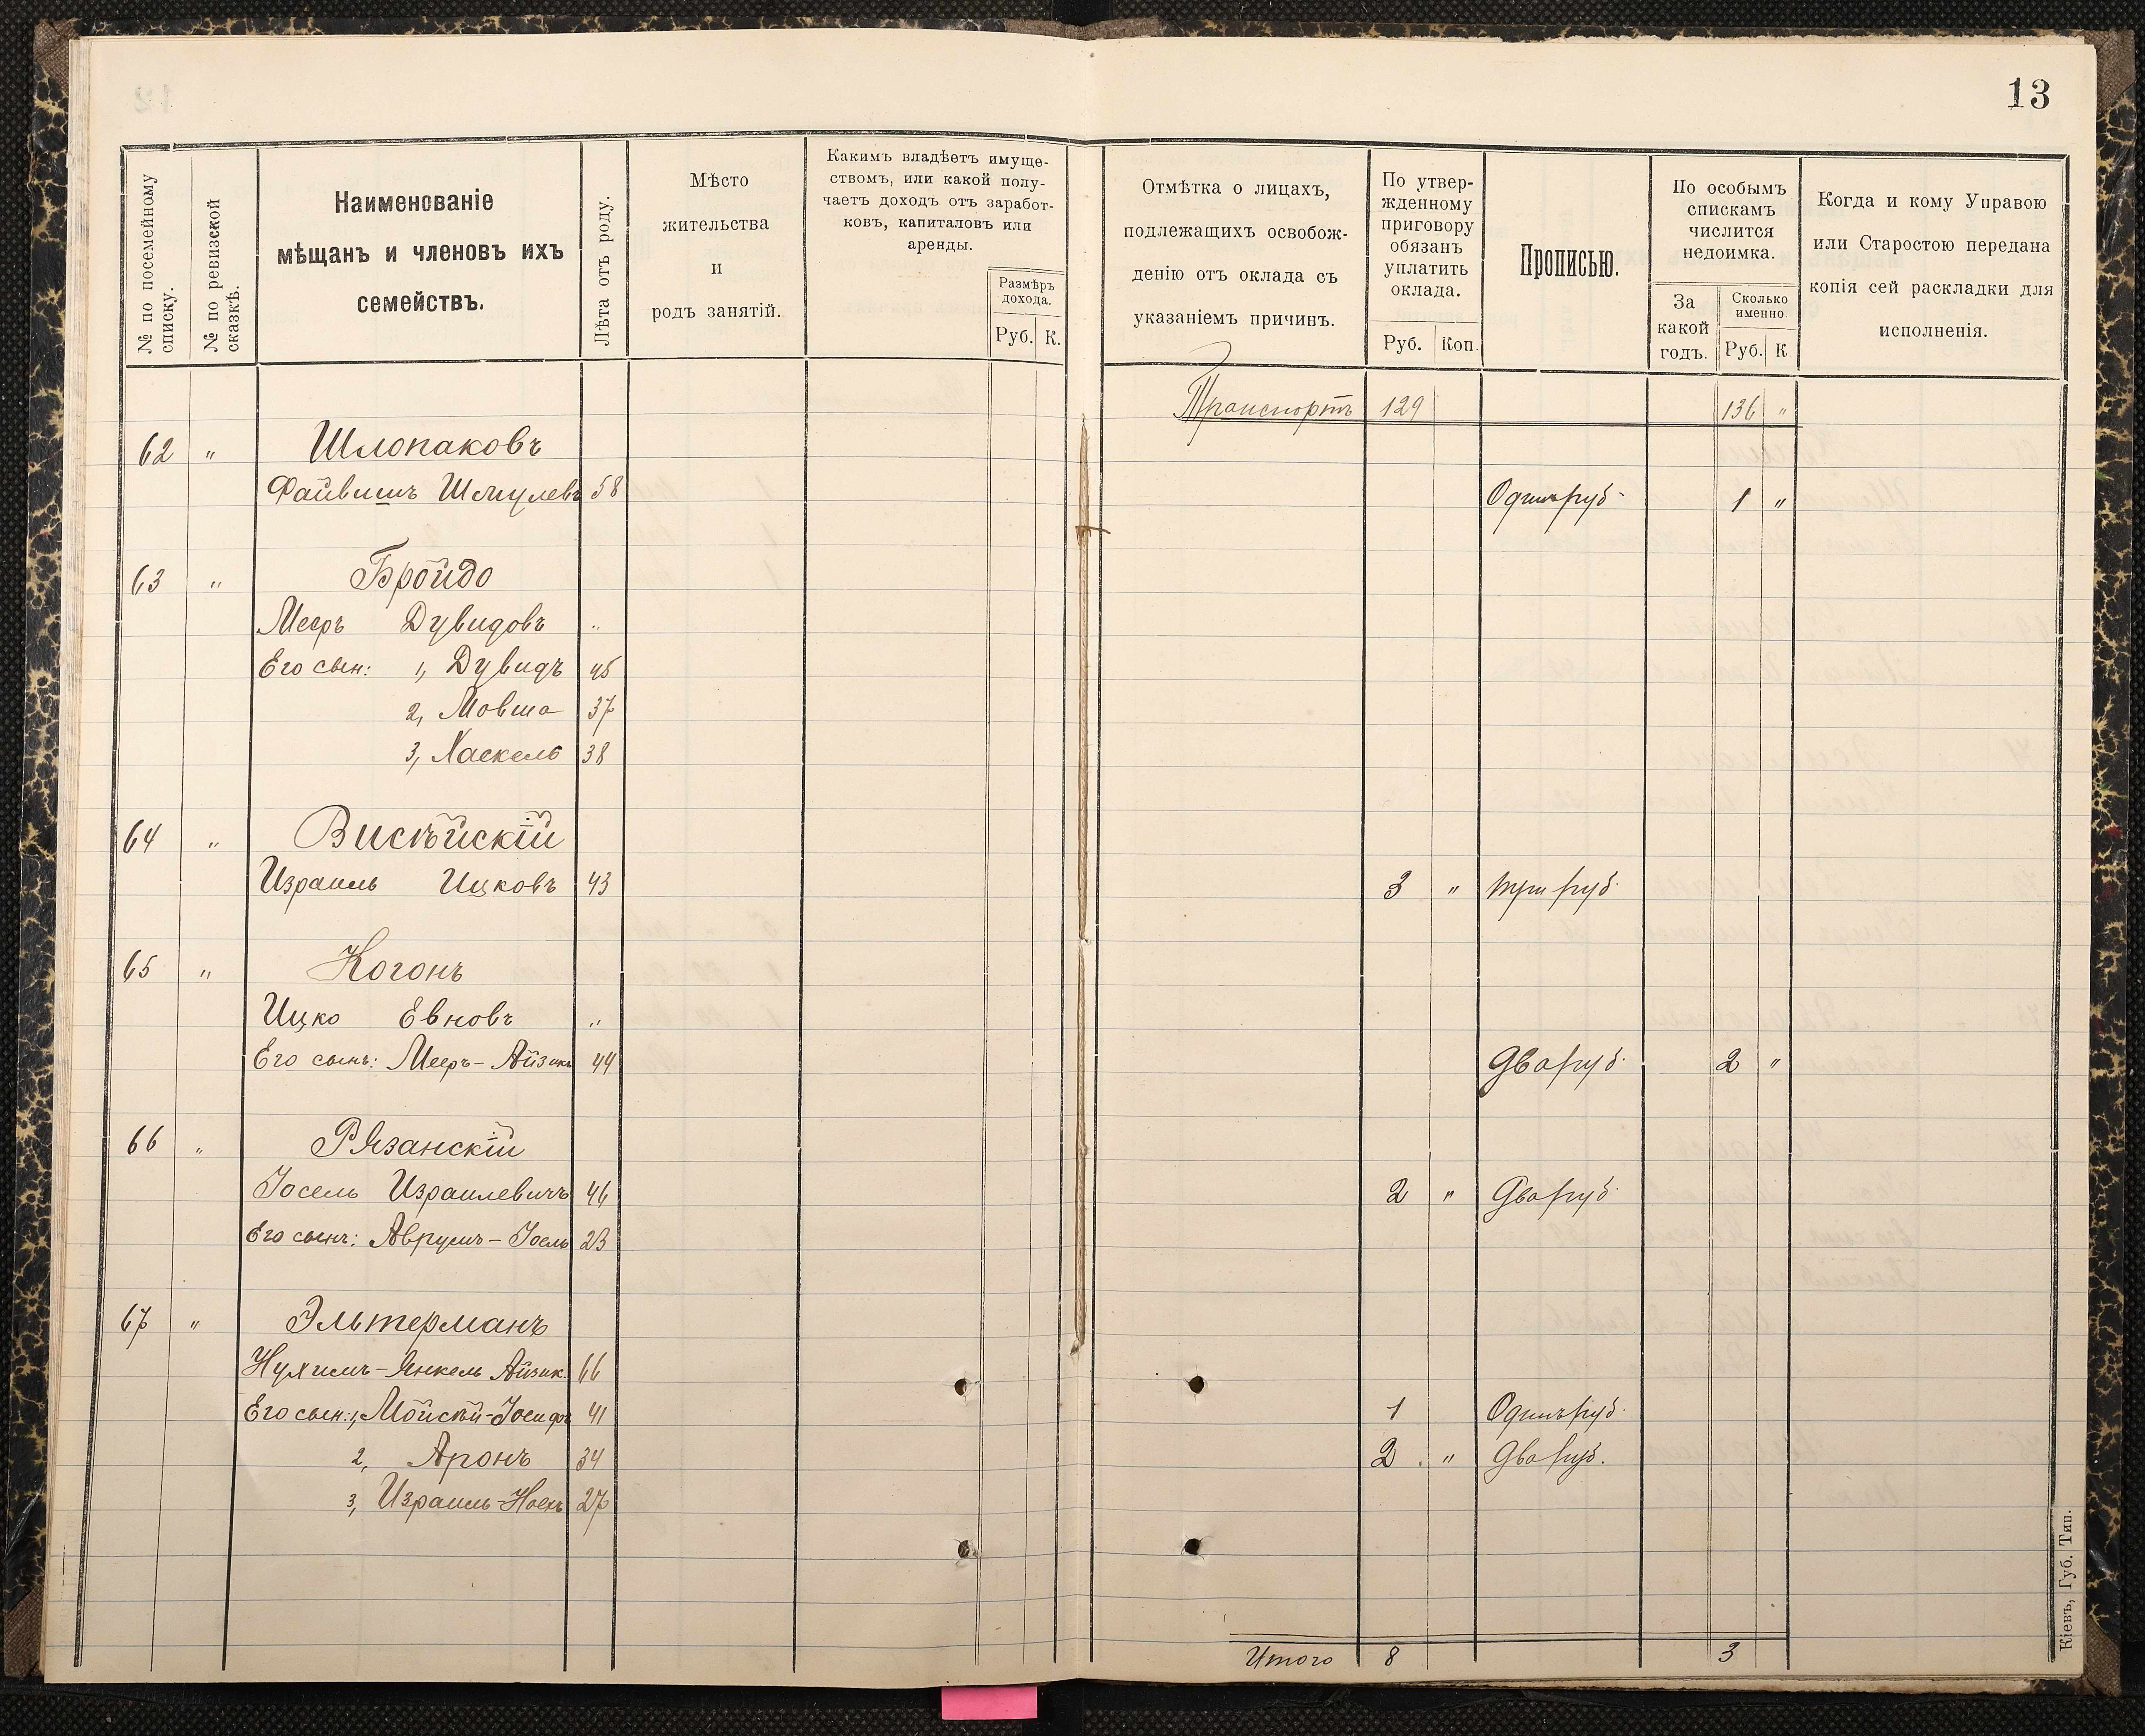 13
№ по посемейному списку.
№ по ревизской сказкѣ.
Наименованіе
мѣщанъ и членовъ ихъ
семействъ.
Лѣта отъ роду.
Мѣсто
жительства
и
родъ занятій.
Какимъ владѣетъ имуще-
ствомъ, или какой полу-
чаетъ доходъ отъ заработ-
ковъ, капиталовъ или
аренды.
Размѣръ
дохода.
Руб. К.
Отмѣтка о лицахъ,
подлежащихъ освобож-
денію отъ оклада съ
указаніемъ причинъ.
По утвер-
жденному
приговору
обязанъ
уплатить
оклада.
Руб. Коп.
Прописью.
По особымъ
спискамъ
числится
недоимка.
За
какой
годъ.
Сколько
именно
Руб. К
Когда и кому Управою
или Старостою передана
копія сей раскладки для
исполненія.
Транспортъ 129 136 "
62 " Шлопаковъ
Файвишъ Шмулевъ 58 Одинъ руб. 1 "
63 " Бройдо
Мееръ Дувидовъ "
Его сын: 1, Дувидъ 45
2, Мовша 37
3, Хаскель 38
64 " Висѣйскій
Израиль Ицковъ 43 3 " три руб.
65 " Когонъ
Ицко Евновъ "
Его сынъ: Мееръ-Айзикъ 44 Два руб. 2 "
66 " Рязанскій
Іосель Израилевичъ 46 2 " Два руб.
Его сынъ: Аврумъ-Іосль 23
67 " Эльтерманъ
Нухимъ-Янкель Айзик. 66
Его сын: 1, Мойсѣй-Іосифъ 41 1 Одинъ руб.
2, Аронъ 34 2 " Два руб.
3, Израиль-Носнъ 27
Итого 8 3
Кіевъ, Губ. Тип.